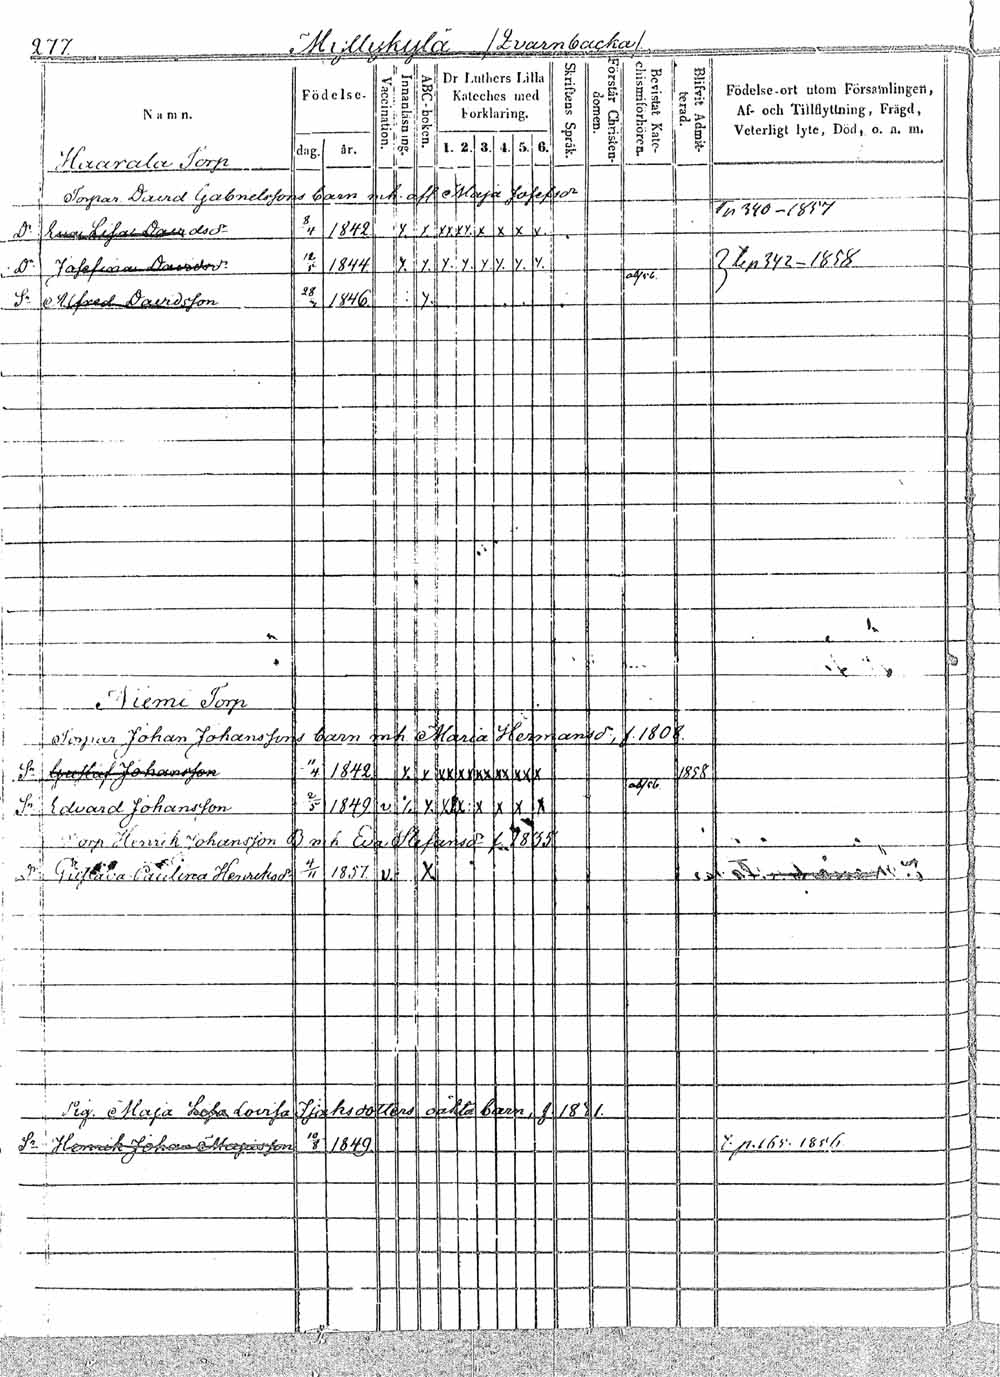 277. Myllykylä /Qvarnbacka/
Namn.
Födelse-
dag. år.
Vaccination.
Innanläsning.
ABC-boken.
Dr Luthers Lilla Kateches med Förklaring.
1. 2. 3. 4. 5. 6.
Skriftens Språk.
Förstår Christendomen.
Bevistat Katechismiförhören.
Blifvit Admitterad.
Födelse-ort utom Församlingen,
Af- och Tillflyttning, Frägd,
Veterligt lyte, Död, o. a. m.
Haarala Torp
Torpar David Gabrielssons barn mh. afl. Maja Josefsd
Dr Eva Lisa Davidsdr 8/4 1842 x x xx xx x x x x. Tn 340-1857
Dr Josefina Davidsdr 12/5 1844 x x x x x x x x 342-1858
Sn Alfred Davidsson 28/7 1846 x
Niemi Torp
Torpar Johan Johanssons barn mh Maria Hermansd, f. 1808.
Sn Gustaf Johansson 11/4 1842 x x xx xx xx xx xx x 1858
Sn Edvard Johansson 2/5 1849 v % x xx xx x x x x
Torp Henrik Johansson B mh Eva Stefansd f. 1835
Dr Gustava Paulina Henriksdr 4/11 1857. v. X
Pig. Maja Lovisa oäkta barn, f. 1821.
Sn Henrik Johan Majasson 10/8 1849. T. p. 165. 1856